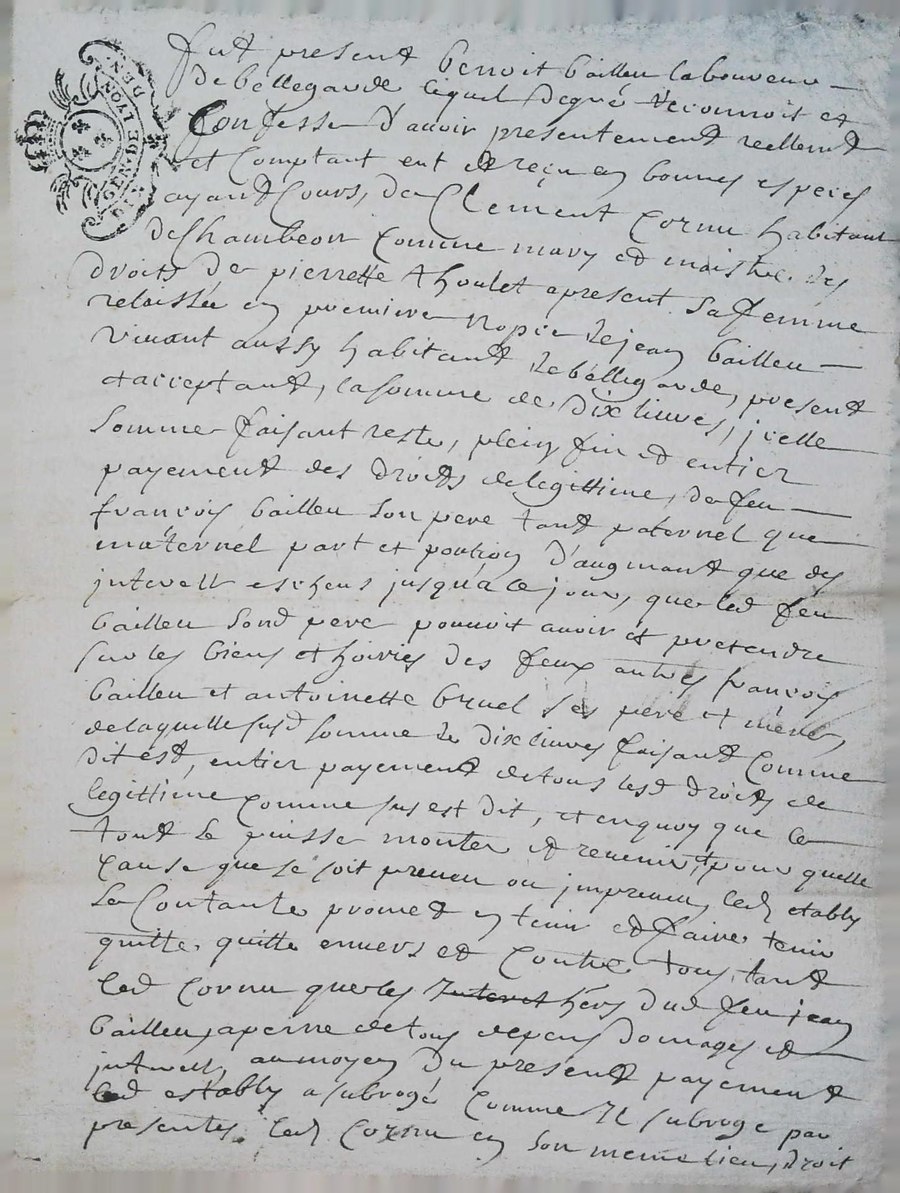 GENERALITE DE LYON
DEN.
fut present benoit bailleu laboureur
de bellegarde lequel de gré reconnoit et
Confesse d'avoir presentement reellement
et Comptant eut et reçu en bonnes especes
ayant Cours, de Clement Cornu habitant
de Chambeon comme mary et maistre des
droits de pierrette thoulet apresent sa femme
relaissée en premiere nopce de jean bailleu
vivant aussy habitant de bellegarde, present
et acceptant, la somme de dix livres, jcelle
somme faisant reste, plein fin et entier
payement des droits de legittime, de feu
francois bailleu son pere tant paternel que
maternel part et portion d'augmant que des
jnterest escheus jusqu'a ce jour, que led feu
bailleu sond pere pouvoit avoir et pretendre
sur les biens et hoiries des feux autres francois
bailleu et antoinette bruel ses pere et mere,
de laquelle susd somme de dix livres faisant comme
dit est, entier payement de tous lesd droits de
legittime comme sus est dit, et en quoy que le
tout se puisse monter et revenir, pour quelle
cause que se soit preveu ou jmpreveu, led estably
se Contante promet en tenir et faire tenir
quitte, quitte envers et contre tous, tant
led Cornu que les hers dud feu jean
bailleu, a peine de tous depens domages et
jnterest, au moyen du present payement
led estably a subrogé comme Il subroge par
presentes led Cornu en son meme lieu, droit